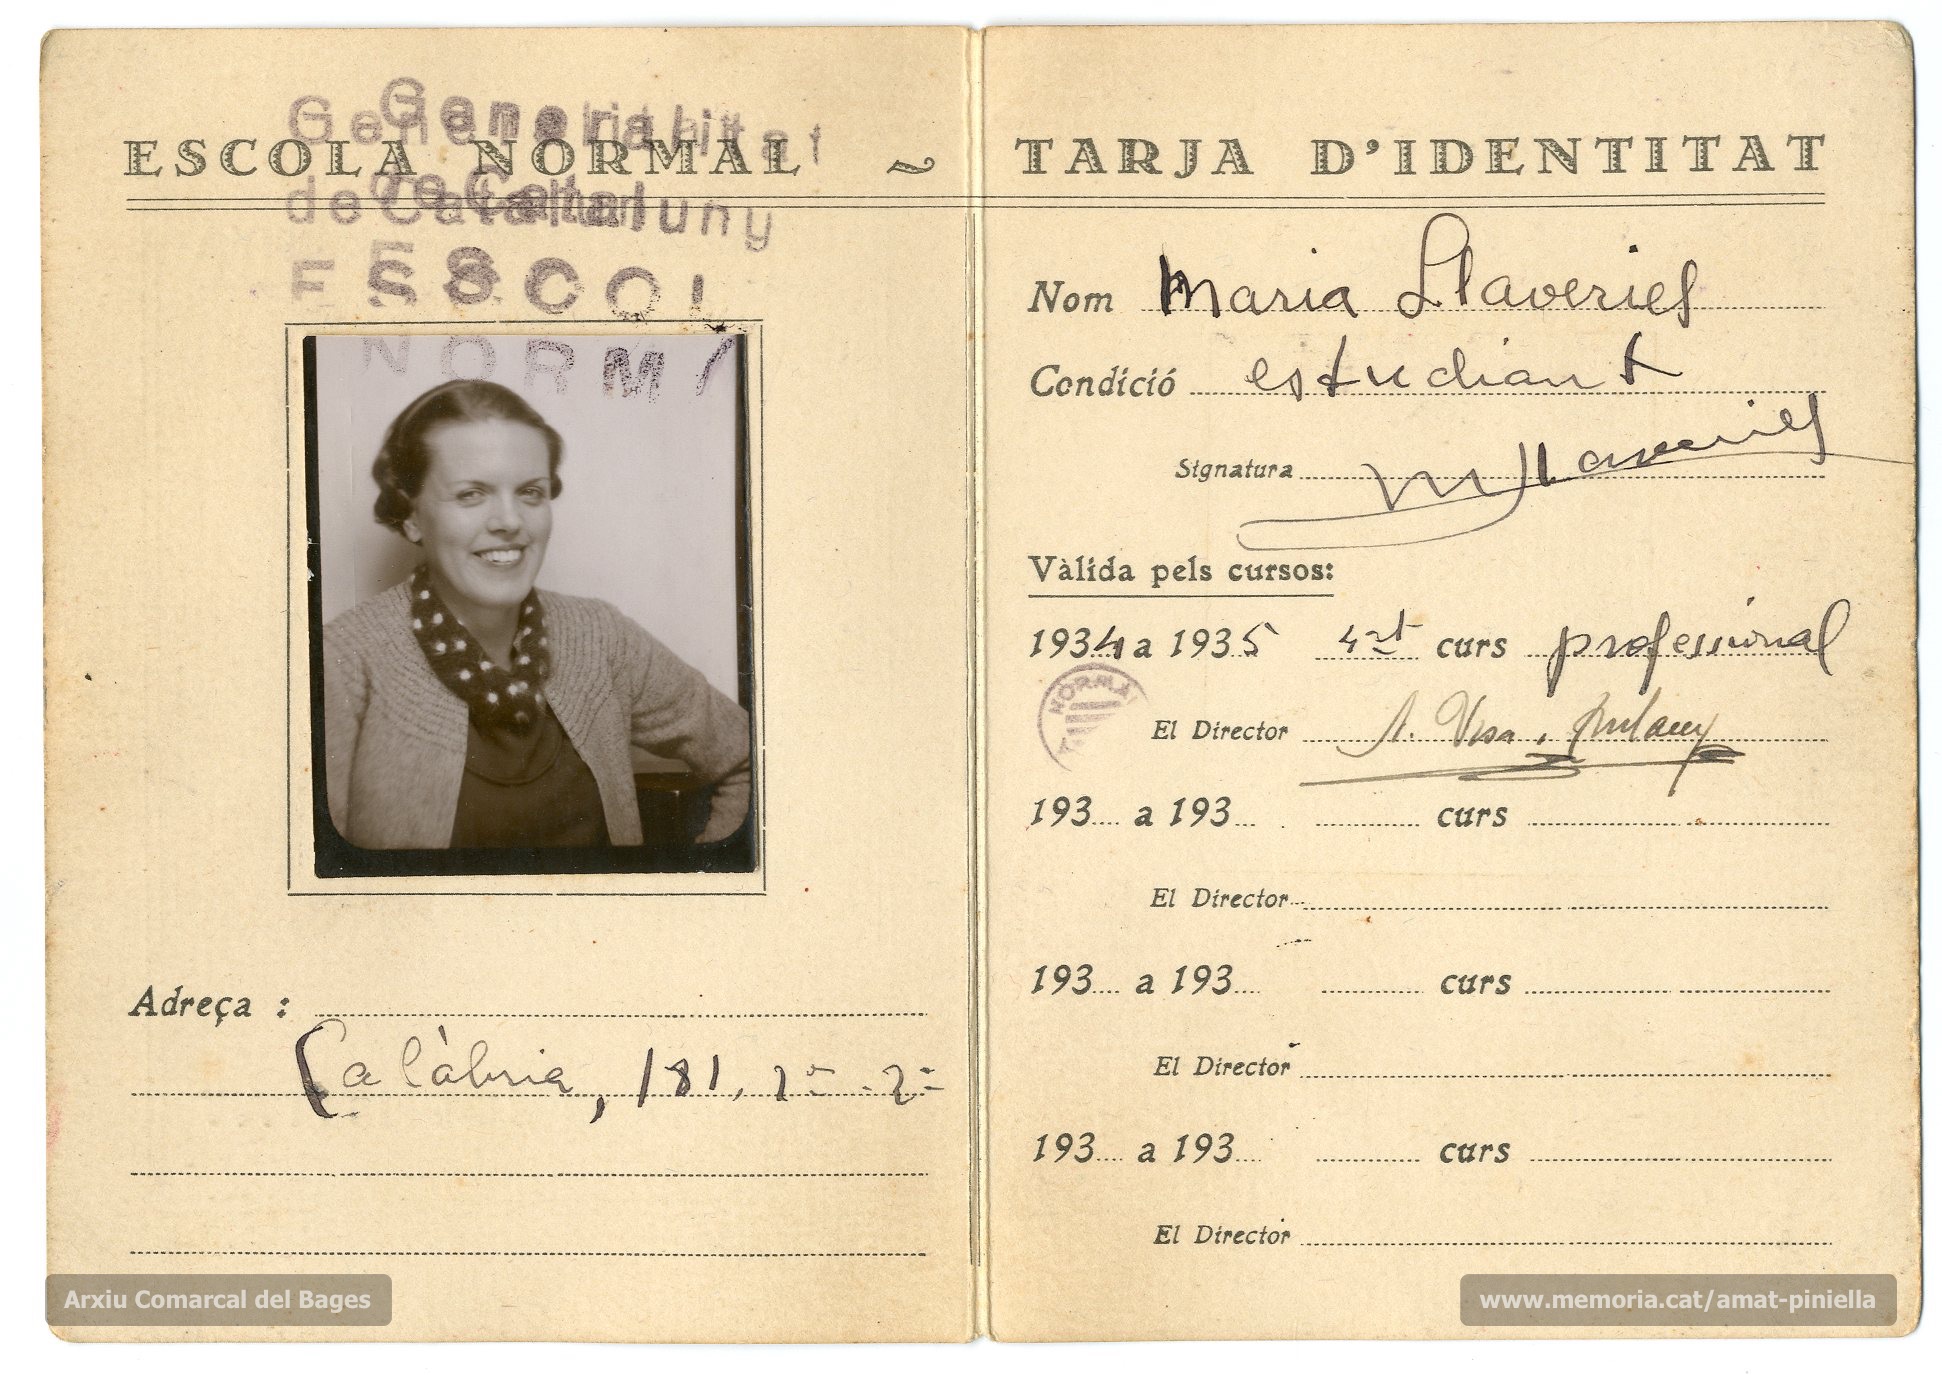 Generalitat
de Catalunya
ESCOLA NORMAL ~ TARJA D'IDENTITAT
ESCOL
NORM
Adreça :
Calàbria, 181, 2º - 2ª
Nom Maria Llaveries
Condició estudiant
Signatura M Llaveries
Vàlida pels cursos:
1934 a 1935 4rt curs professional
NORMAL
El Director A.
193 a 193 curs
El Director
193 a 193 curs
El Director
193 a 193 curs
El Director
Arxiu Comarcal del Bages
www.memoria.cat/amat-piniella